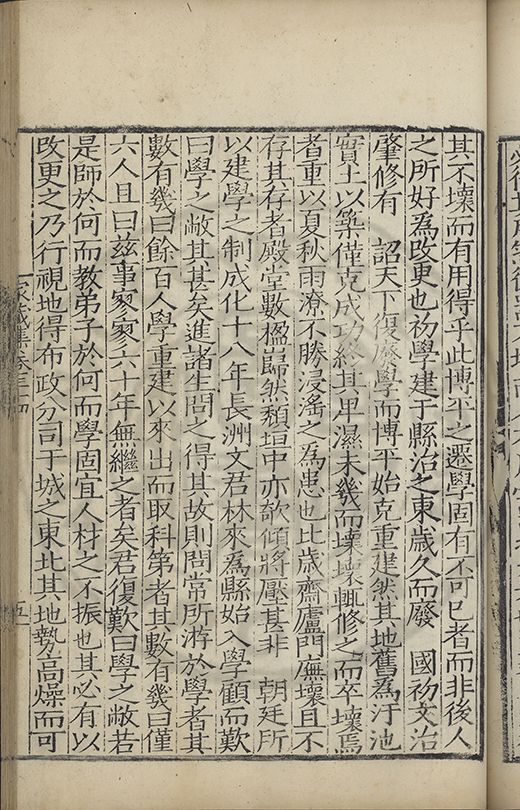 其不壞而有用得乎此博平之遷學固有不可已者而非後人
之所好為改更也初學建于縣治之東歲久而廢　國初文治
肇修有　詔天下復廢學而博平始克重建然其地舊為汙池
實土以築僅克成功終其卑濕未幾而壞壞輒修之而卒壞焉
者重以夏秋雨潦不勝浸淫之為患也比歲齋廬門廡壞且不
存其存者殿堂數楹巋然頹垣中亦欹傾將壓甚非　朝廷所
以建學之制成化十八年長洲文君林來為縣始入學顧而歎
曰學之敝其甚矣進諸生問之得其故則問常所游於學者其
數有幾曰餘百人學重建以來出而取科第者其數有幾曰僅
六人且曰茲事寥寥六十年無繼之者矣君復歎曰學之敝若
是師於何而教弟子於何而學固宜人材之不振也其必有以
改更之乃行視地得布政分司于城之東北其地勢高燥而可
家藏集卷三十四
五